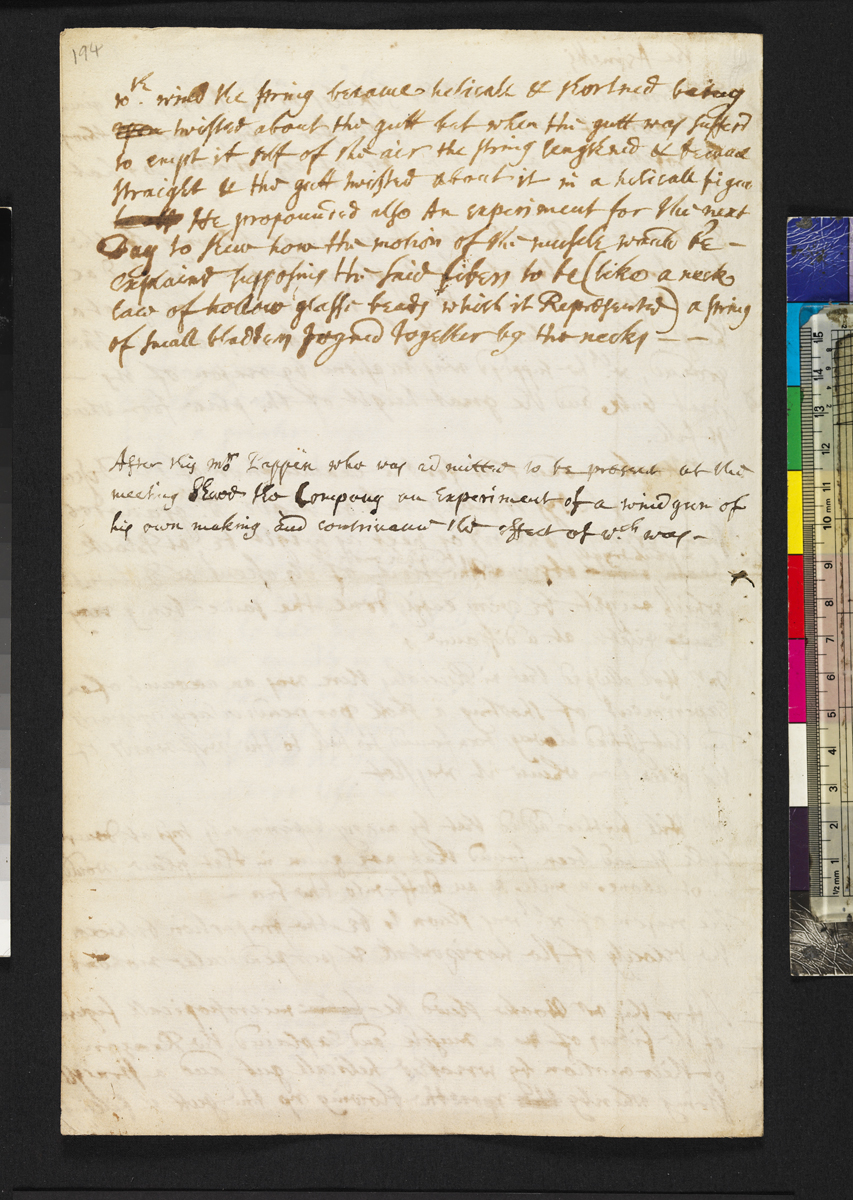 194
wth. wind the string became helicall & shortned being
upon twisted about the gutt but when the gutt was sufferd
to empt it self of the air the string lengthned & became
straight & the gutt twisted about it in a helicall figure
He propounded also An experiment for the next
Day to shew how the motion of the muscle would be -
explaind supposing the said fibers to be (like a neck
lace of hollow glasse beads which it Represented) a string
of small bladders Joyned together by the necks - -
After this mr Pappin who was admitted to be present at the
meeting Shewd the Company an Experiment of a wind gun of
his own making and contrivance the effect of wch was -